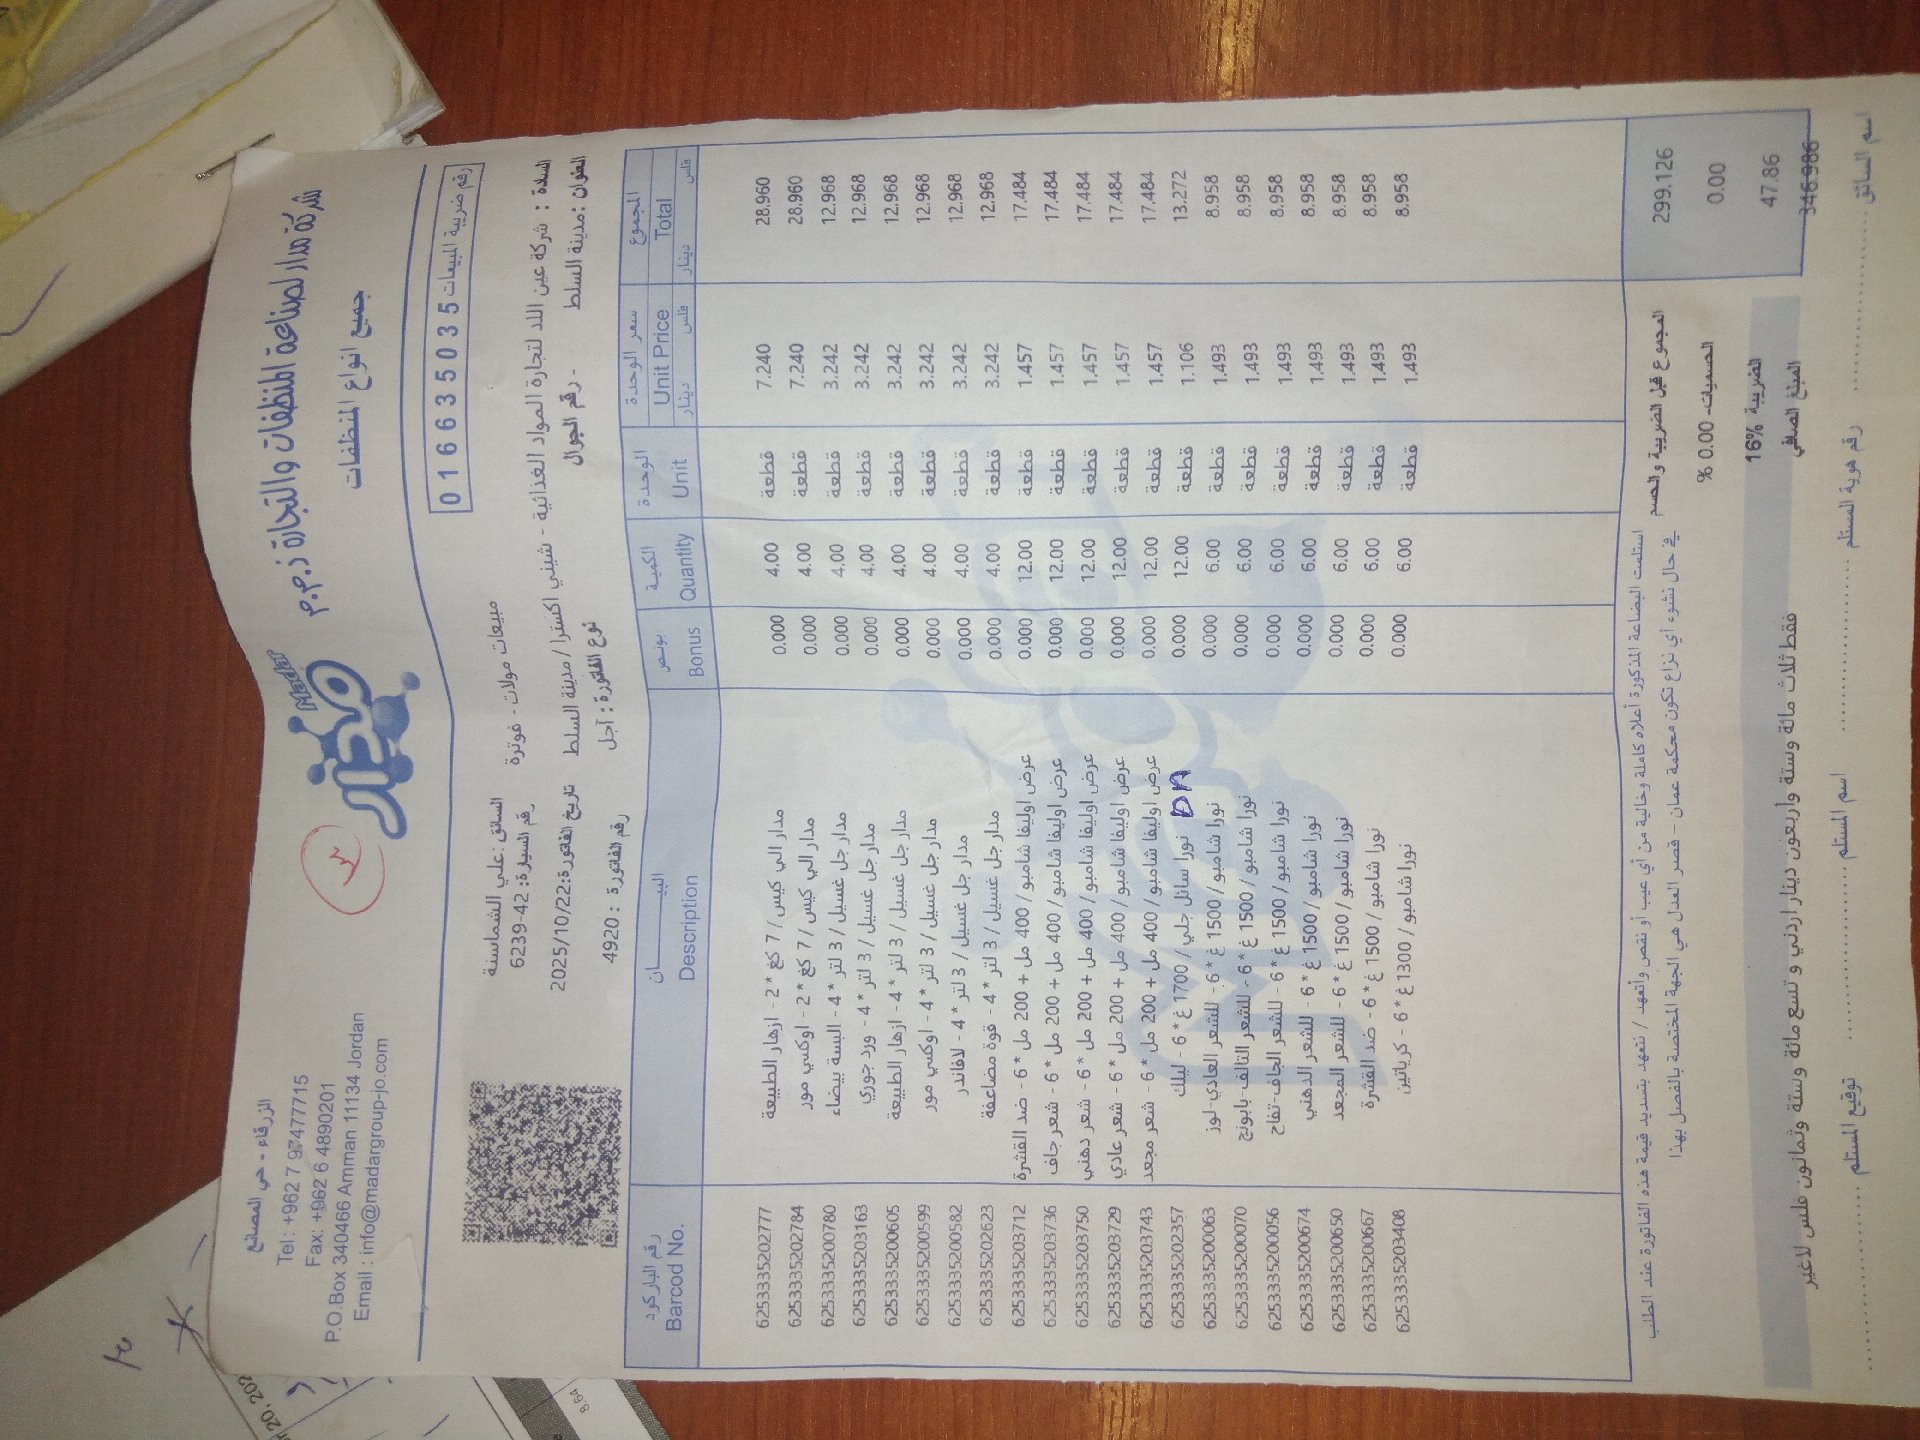 شركة مدار لصناعة المنظفات والتجارة ذ.م.م
جميع انواع المنظفات
مدار
Madar
الزرقاء - حي المصانع
Tel: +962 7 97477715
Fax: +962 6 4890201
P.O.Box 340466 Amman 11134 Jordan
Email : info@madargroup-jo.com
رقم ضريبة المبيعات 016635035
السادة : شركة عين اللد لتجارة المواد الغذائية - شيني اكسترا / مدينة السلط
العنوان :مدينة السلط - رقم الجوال
مبيعات مولات - فوترة
السائق :علي الشماسنة
رقم السيارة: 42-6239
تاريخ الفاتورة:2025/10/22
نوع الفاتورة : آجل
رقم الفاتورة : 4920
رقم الباركود البيــــــــان بونص الكمية الوحدة سعر الوحدة المجموع
Barcod No. Description Bonus Quantity Unit Unit Price Total
دينار فلس دينار فلس
6253335202777 مدار الي كيس / 7 كغ * 2 - ازهار الطبيعة 0.000 4.00 قطعة 7.240 28.960
6253335202784 مدار الي كيس / 7 كغ * 2 - اوكسي مور 0.000 4.00 قطعة 7.240 28.960
6253335200780 مدار جل غسيل / 3 لتر * 4 - البسة بيضاء 0.000 4.00 قطعة 3.242 12.968
6253335203163 مدار جل غسيل / 3 لتر * 4 - ورد جوري 0.000 4.00 قطعة 3.242 12.968
6253335200605 مدار جل غسيل / 3 لتر * 4 - ازهار الطبيعة 0.000 4.00 قطعة 3.242 12.968
6253335200599 مدار جل غسيل / 3 لتر * 4 - اوكسي مور 0.000 4.00 قطعة 3.242 12.968
6253335200582 مدار جل غسيل / 3 لتر * 4 - لافاندر 0.000 4.00 قطعة 3.242 12.968
6253335202623 مدار جل غسيل / 3 لتر * 4 - قوة مضاعفة 0.000 4.00 قطعة 3.242 12.968
6253335203712 عرض اوليفا شامبو / 400 مل + 200 مل * 6 - ضد القشرة 0.000 12.00 قطعة 1.457 17.484
6253335203736 عرض اوليفا شامبو / 400 مل + 200 مل * 6 - شعر جاف 0.000 12.00 قطعة 1.457 17.484
6253335203750 عرض اوليفا شامبو / 400 مل + 200 مل * 6 - شعر دهني 0.000 12.00 قطعة 1.457 17.484
6253335203729 عرض اوليفا شامبو / 400 مل + 200 مل * 6 - شعر عادي 0.000 12.00 قطعة 1.457 17.484
6253335203743 عرض اوليفا شامبو / 400 مل + 200 مل * 6 - شعر مجعد 0.000 12.00 قطعة 1.457 17.484
6253335202357 نورا سائل جلي / 1700 غ * 6 - ليلك 0.000 12.00 قطعة 1.106 13.272
6253335200063 نورا شامبو / 1500 غ * 6 - للشعر العادي-لوز 0.000 6.00 قطعة 1.493 8.958
6253335200070 نورا شامبو / 1500 غ * 6 - للشعر التالف-بابونج 0.000 6.00 قطعة 1.493 8.958
6253335200056 نورا شامبو / 1500 غ * 6 - للشعر الجاف-تفاح 0.000 6.00 قطعة 1.493 8.958
6253335200674 نورا شامبو / 1500 غ * 6 - للشعر الدهني 0.000 6.00 قطعة 1.493 8.958
6253335200650 نورا شامبو / 1500 غ * 6 - للشعر المجعد 0.000 6.00 قطعة 1.493 8.958
6253335200667 نورا شامبو / 1500 غ * 6 - ضد القشرة 0.000 6.00 قطعة 1.493 8.958
6253335203408 نورا شامبو / 1300 غ * 6 - كرياتين 0.000 6.00 قطعة 1.493 8.958
استلمت البضاعة المذكورة أعلاه كاملة وخالية من أي عيب أو نقص وأتعهد / نتعهد بتسديد قيمة هذه الفاتورة عند الطلب
في حال نشوء أي نزاع تكون محكمة عمان - قصر العدل هي الجهة المختصة بالفصل بهذا
المجموع قبل الضريبة والخصم 299.126
الخصميات- 0.00 % 0.00
الضريبة 16% 47.86
المبلغ الصافي 346.986
فقط ثلاث مائة وستة واربعون دينار اردني و تسع مائة وستة وثمانون فلس لاغير
اسم السائق .......... رقم هوية المستلم .......... اسم المستلم .......... توقيع المستلم ..........